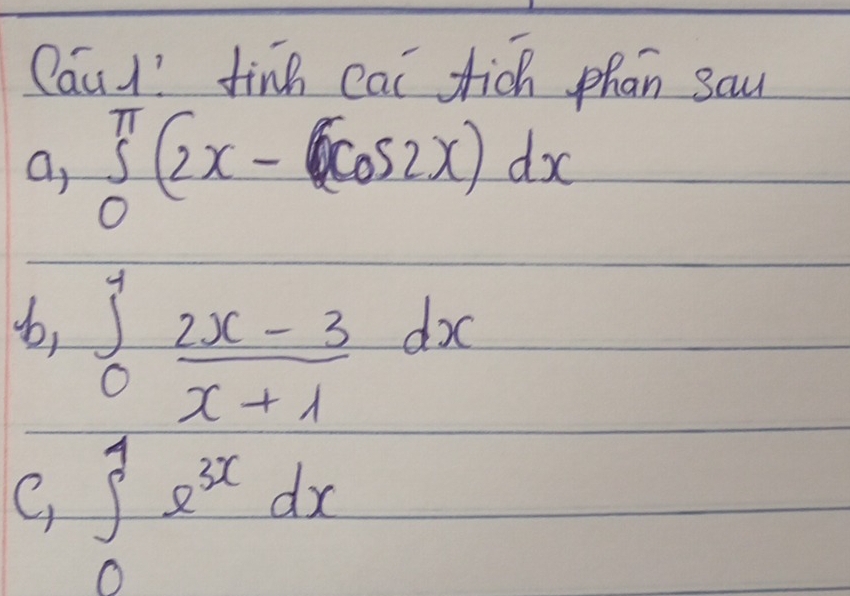 Câu 1: tính các tích phân sau
a, ∫₀^π (2x - cos2x) dx
b, ∫₀^1 (2x - 3)/(x + 1) dx
c, ∫₀^1 e^{3x} dx